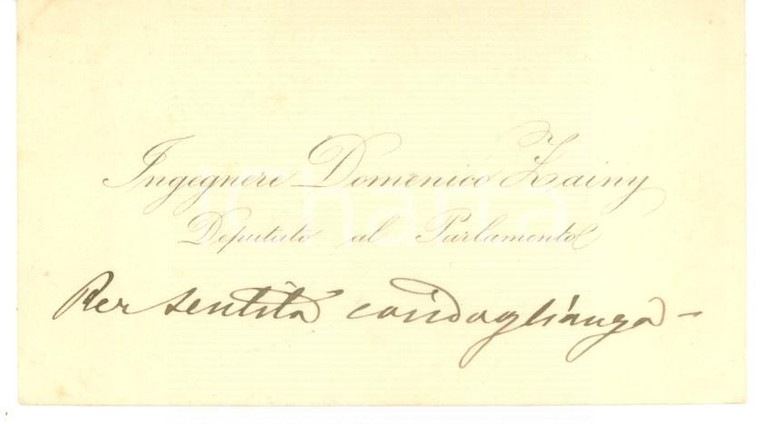 Ingegnere Domenico Zainy
Deputato al Parlamento
Per sentita condoglianza -